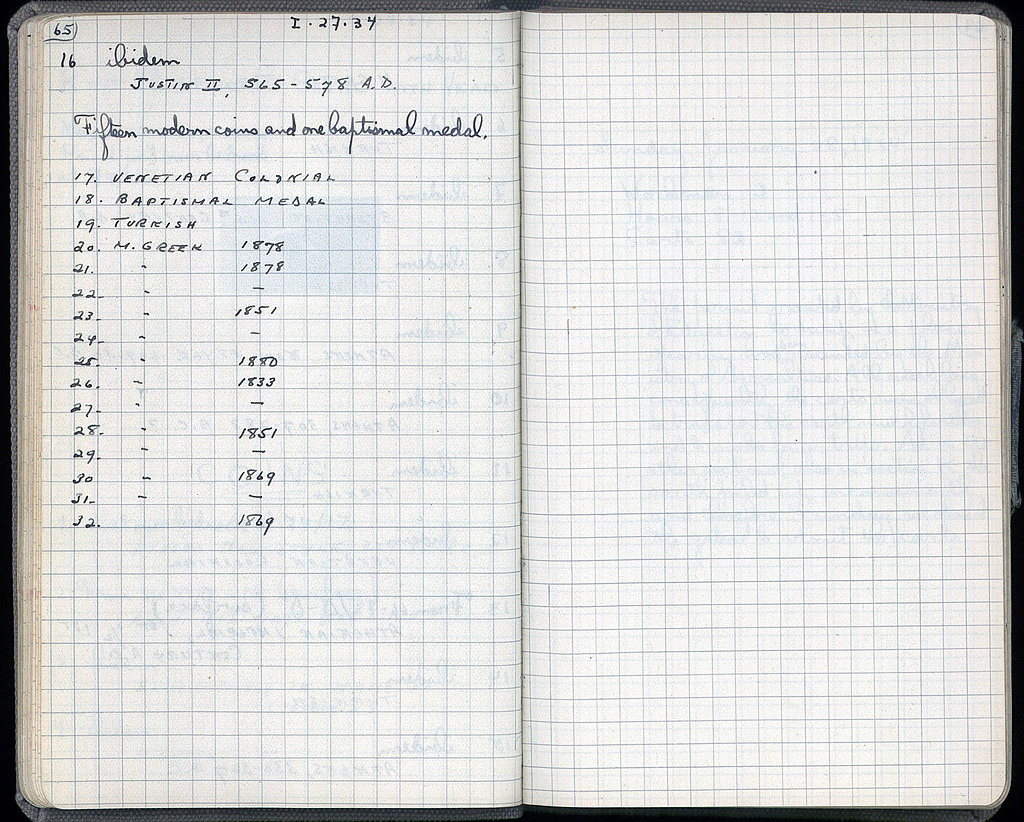 65
I · 27 · 34
16 ibidem
JUSTIN II, 565 - 578 A.D.
Fifteen modern coins and one baptismal medal.
17. VENETIAN COLONIAL
18. BAPTISMAL MEDAL
19. TURKISH
20. M. GREEK 1878
21. " 1878
22. " —
23. " 1851
24. " —
25. " 1880
26. " 1833
27. " —
28. " 1851
29. " —
30 " 1869
31. " —
32. 1869